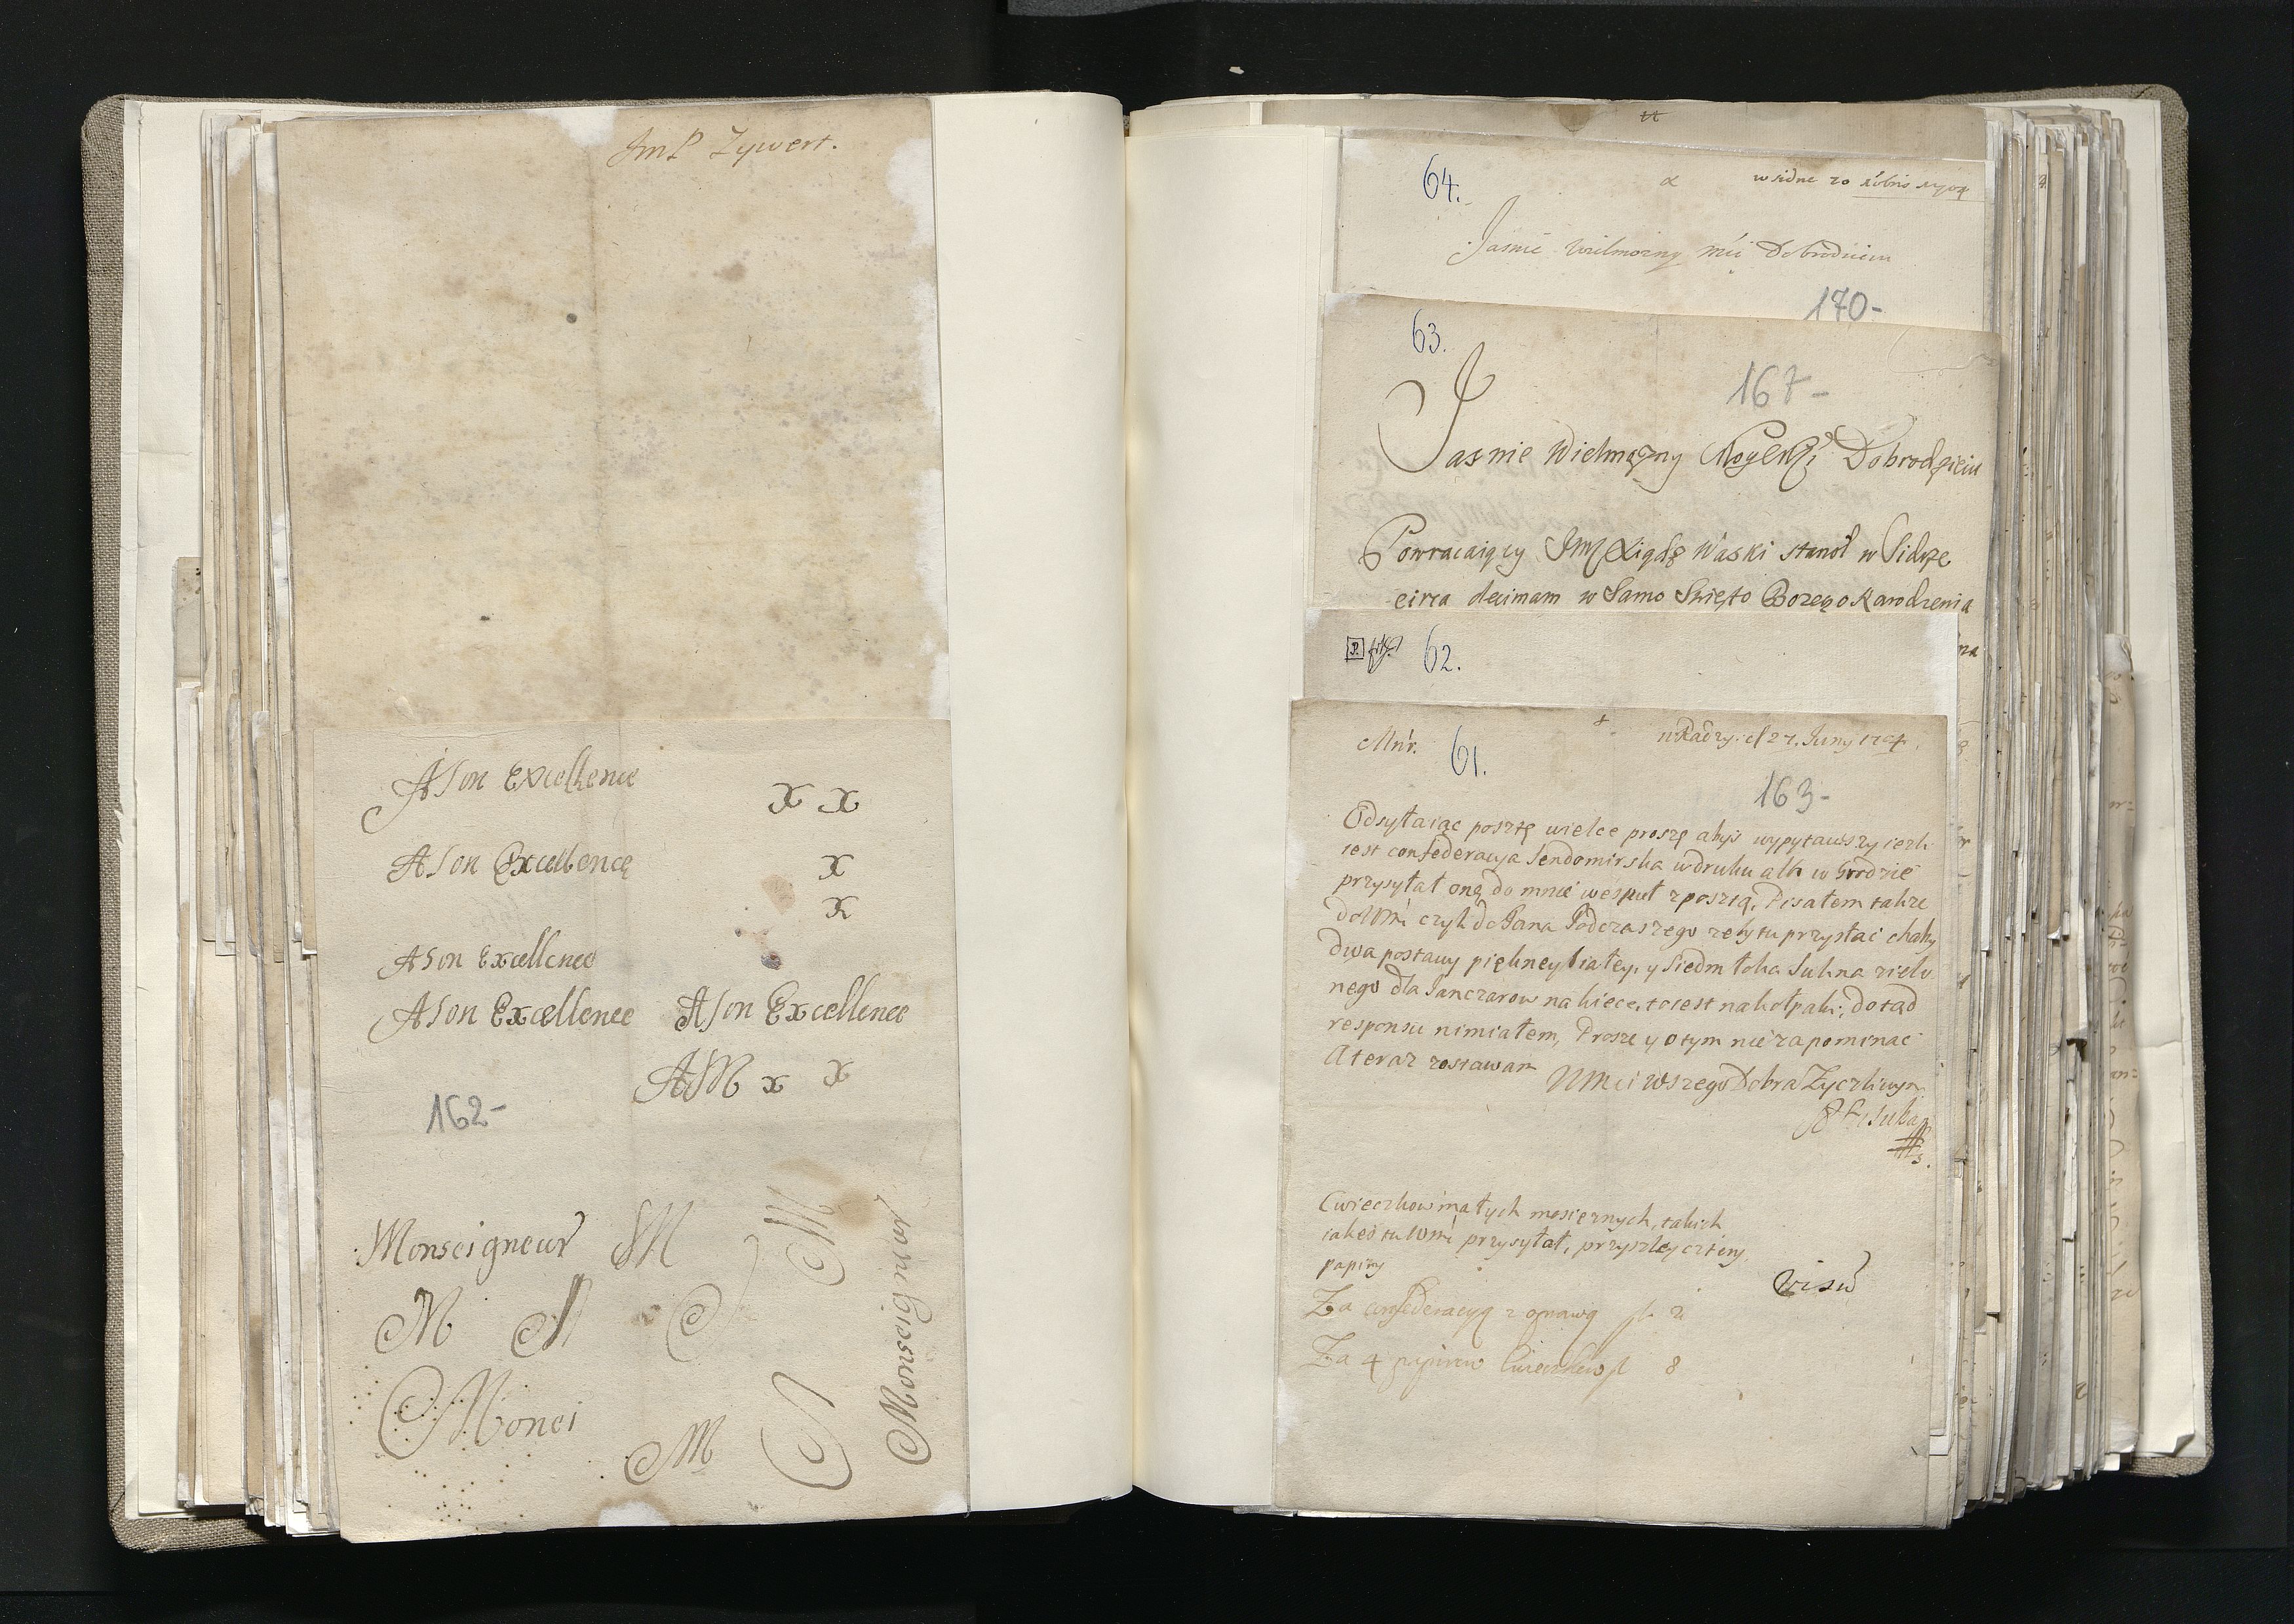 JmP Zywert.
A Son Excellence
x x
A Son Excellence
x
x
A Son Excellence
A Son Excellence A Son Excellence
A M x x
162-
Monseigneur M M
M M
Monsei
M
Monseigneur
64.
Jasnie Wielmozny Mci Dobrodzieiu
170-
63.
167-
Jasnie Wielmozny Dobrodzieiu
Powracaiący Jmć Xiądz Waski stanoł w Sidrze
circa decimam w Samo Swięto Bozego Narodzenia
na
62.
Mńr. 27. Juny
61.
163-
Odsyłaiąc posztę wielce proszę abyś wypytawszy iezli
iest confederacya Sendomirska w druku albo w Grodzie
przysyłał onę do mnie wespuł z posztą, Pisałem takze
do Wmci czyli do Pana Podczaszego zeby tu przysłać
dwa postawy piękney białey, y siedm łokci Sukna zielo
nego dla Janczarow na kiece, to iest na kołpaki, dotąd
responsu nimiałem, Proszę y o tym nie zapominać
A teraz zostawam
Wmci wszego Dobra Zyczliwym
Cwieczkow małych mosięznych, takich
iakeś tu Wmć przysyłał, przyszley cztery
papiry
Za confederacyą z oprawą fl. 2
Za 4 papirow Cwieczkow fl 8